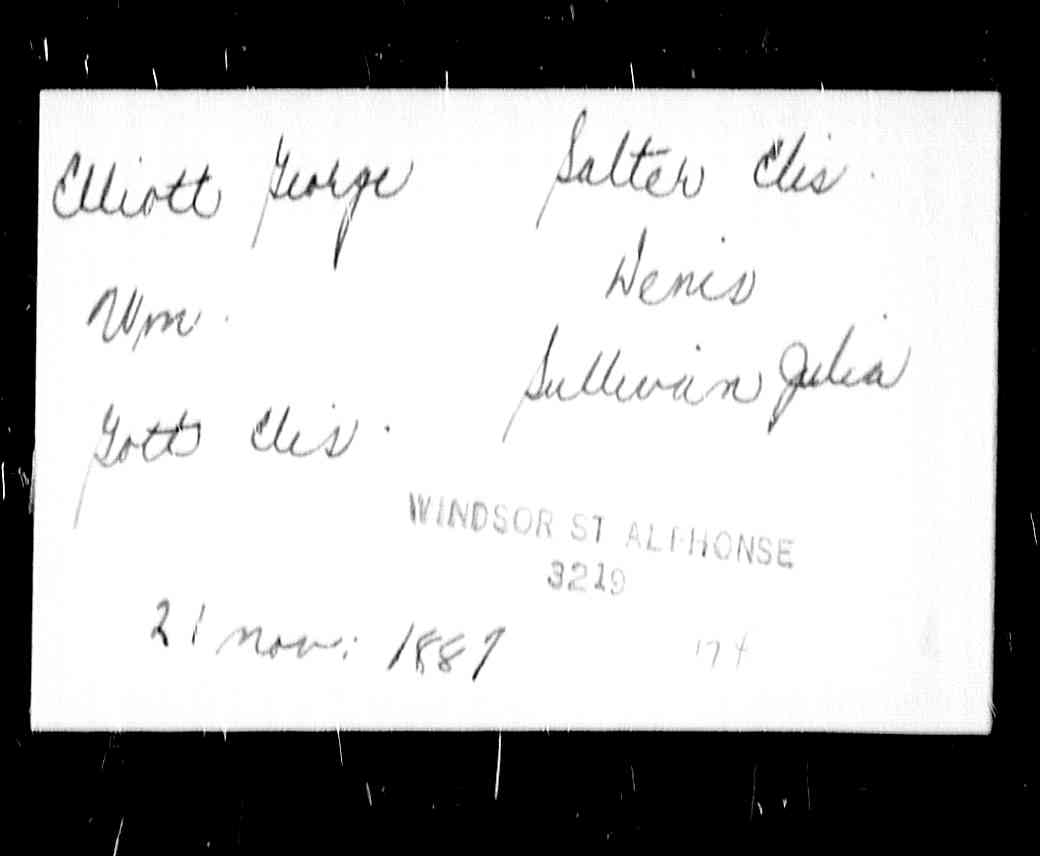 Elliott George
Wm.
Gott Elis.
Salter Elis.
Denis
Sullivan Julia
WINDSOR ST ALPHONSE
3219
21 nov: 1887
174